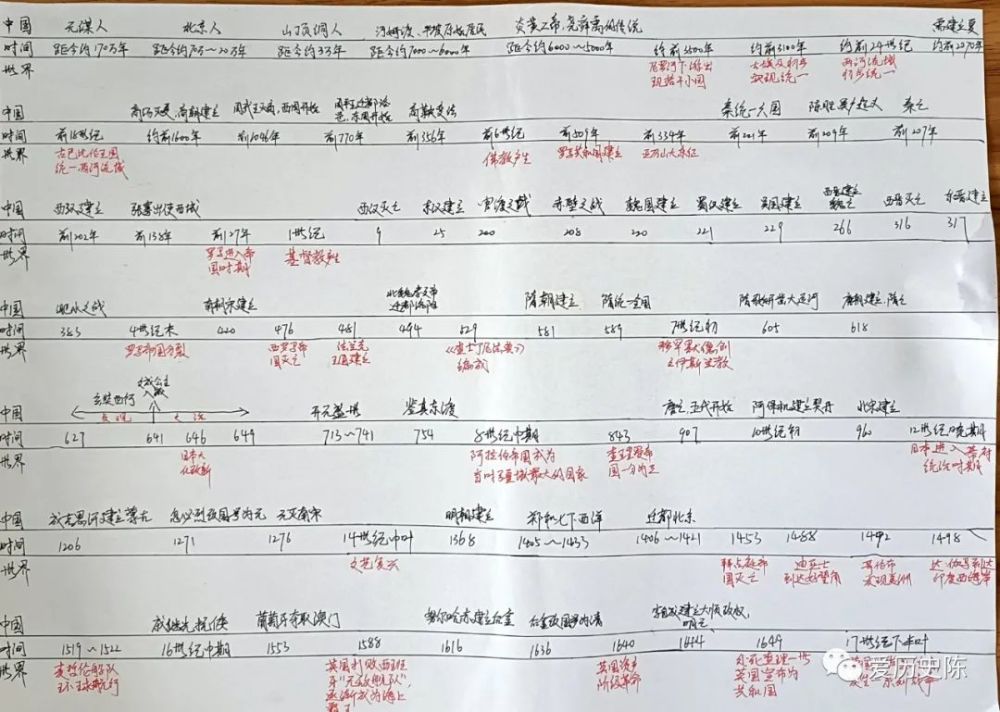 中国 元谋人 北京人 山顶洞人 河姆渡、半坡原始居民 炎黄二帝,尧舜禹的传说 禹建立夏
时间 距今约170万年 距今约70万~20万年 距今约3万年 距今约7000~6000年 距今约6000~5000年 约前3500年 约前3100年 约前24世纪 约前2070年
世界 尼罗河下游出 古埃及初步 两河流域
现若干小国 实现统一 初步统一
中国 商汤灭夏,商朝建立 周武王灭商,西周开始 周平王迁都洛 商鞅变法 秦统一六国 陈胜吴广起义 秦亡
邑,东周开始
时间 前18世纪 约前1600年 前1046年 前770年 前356年 前6世纪 前509年 前334年 前221年 前209年 前207年
世界 古巴比伦王国 佛教产生 罗马共和国建立 亚历山大东征
统一两河流域
中国 西汉建立 张骞出使西域 西汉灭亡 东汉建立 官渡之战 赤壁之战 魏国建立 蜀汉建立 吴国建立 西晋建立 西晋灭亡 东晋建立
魏亡
时间 前202年 前138年 前27年 1世纪 9 25 200 208 220 221 229 266 316 317
世界 罗马进入帝 基督教产生
国时期
中国 淝水之战 南朝宋建立 北魏孝文帝 隋朝建立 隋统一全国 隋朝开凿大运河 唐朝建立,隋亡
迁都洛阳
时间 383 4世纪末 420 476 481 494 529 581 589 7世纪初 605 618
世界 罗马帝国分裂 西罗马帝 法兰克 《查士丁尼法典》 穆罕默德创
国灭亡 王国建立 编成 立伊斯兰教
中国 玄奘西行 文成公主 开元盛世 鉴真东渡 唐亡,五代开始 阿保机建立契丹 北宋建立
入藏
贞观之治
时间 627 641 646 649 713~741 754 8世纪中期 843 907 10世纪初 960 12世纪晚期
世界 日本大 阿拉伯帝国成为 查理曼帝 日本进入幕府
化改新 当时疆域最大的国家 国一分为三 统治时期
中国 成吉思汗建立蒙古 忽必烈改国号为元 元灭南宋 明朝建立 郑和七下西洋 迁都北京
时间 1206 1271 1276 14世纪中叶 1368 1405~1433 1406~1421 1453 1488 1492 1498
世界 文艺复兴 拜占庭帝 迪亚士 哥伦布 达·伽马到达
国灭亡 到达好望角 发现美洲 印度西海岸
中国 戚继光抗倭 葡萄牙夺取澳门 努尔哈赤建立后金 后金改国号为清 李自成建立大顺政权,
明亡
时间 1519~1522 16世纪中期 1553 1588 1616 1636 1640 1644 1649 17世纪下半叶
世界 麦哲伦船队 英国打败西班 英国资产 处死查理一世
环球航行 牙“无敌舰队”, 阶级革命 英国宣布为
逐渐成为海上 共和国
霸王
爱历史陈